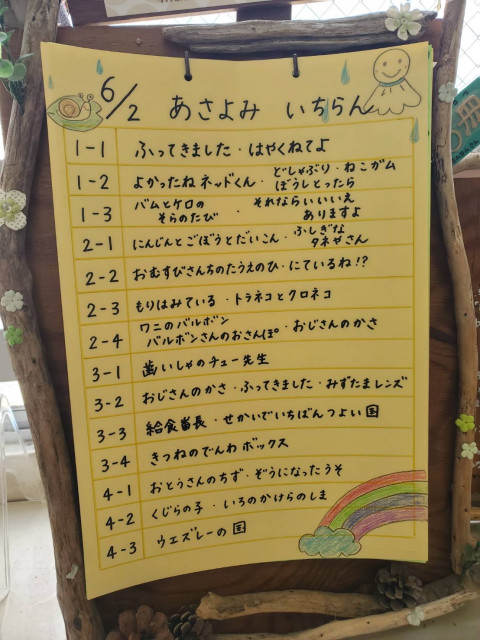 6/2 あさよみ いちらん
1-1 ふってきました・はやくねてよ
1-2 よかったねネッドくん・どしゃぶり・ねこガム
ぼうしとったら
1-3 バムとケロの
そらのたび ・ それならいいいえ
ありますよ
2-1 にんじんとごぼうとだいこん・ふしぎな
タネやさん
2-2 おむすびさんちのたうえのひ・にているね!?
2-3 もりはみている・トラネコとクロネコ
2-4 ワニのバルボン
バルボンさんのおさんぽ・おじさんのかさ
3-1 歯いしゃのチュー先生
3-2 おじさんのかさ・ふってきました・みずたまレンズ
3-3 給食番長・せかいでいちばんつよい国
3-4 きつねのでんわボックス
4-1 おとうさんのちず・ぞうになったうそ
4-2 くじらの子・いろのかけらのしま
4-3 ウエズレーの国